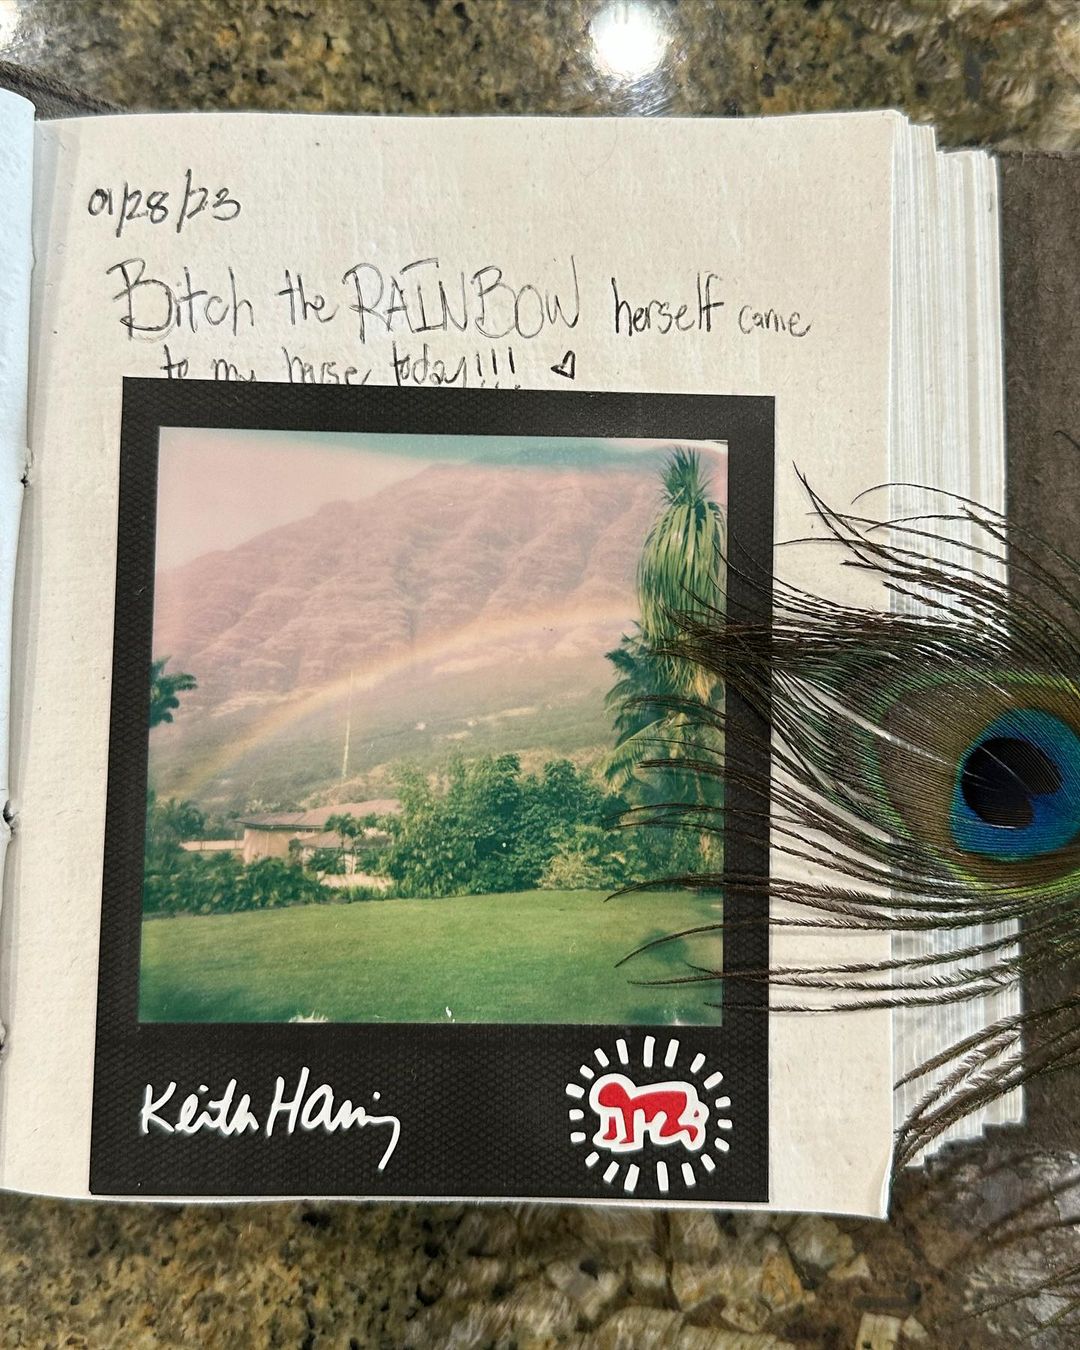 01/28/23
Bitch the RAINBOW herself came
to my house today!!! ♡
Keith Haring